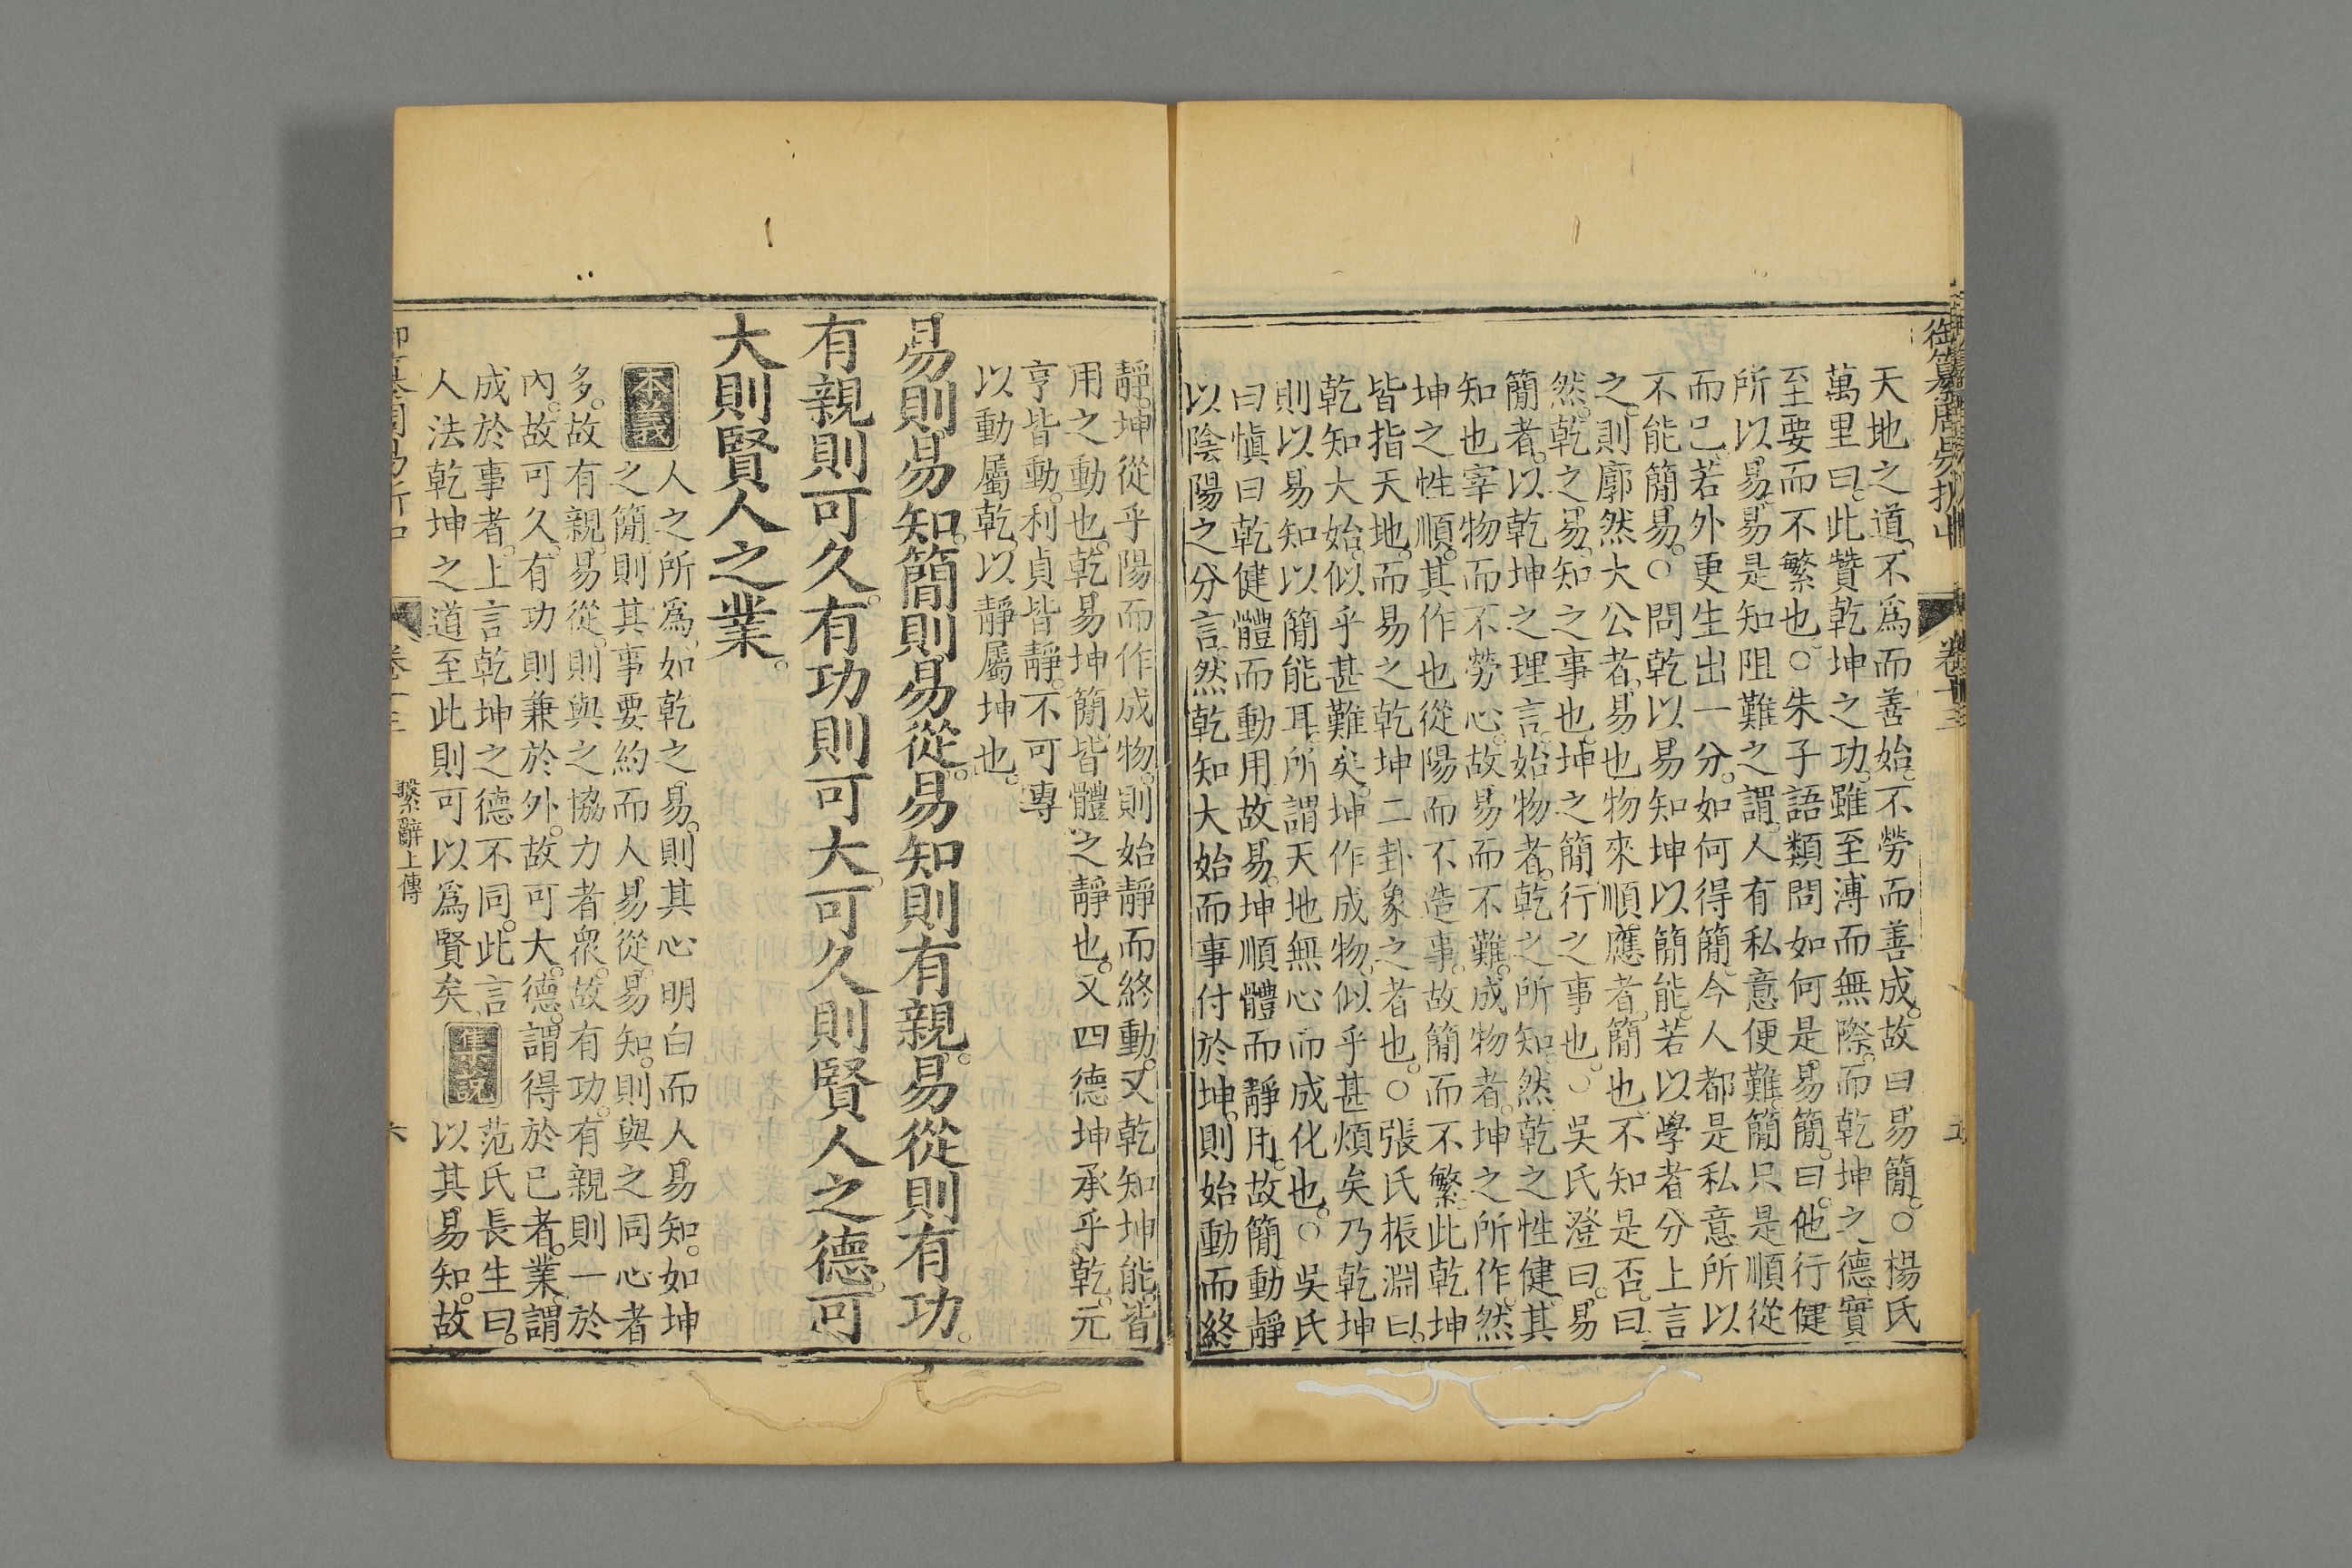 御纂周易折中 卷十三 五
天地之道不爲而善始不勞而善成故曰易簡○楊氏
萬里曰此贊乾坤之功雖至溥而無際而乾坤之德實
至要而不繁也○朱子語類問如何是易簡曰他行健
所以易易是知阻難之謂人有私意便難簡只是順從
而已若外更生出一分如何得簡今人都是私意所以
不能簡易○問乾以易知坤以簡能若以學者分上言
之則廓然大公者易也物來順應者簡也不知是否曰
然乾之易知之事也坤之簡行之事也○吳氏澄曰易
簡者以乾坤之理言始物者乾之所知然乾之性健其
知也宰物而不勞心故易而不難成物者坤之所作然
坤之性順其作也從陽而不造事故簡而不繁此乾坤
皆指天地而易之乾坤二卦象之者也○張氏振淵曰
乾知大始似乎甚難矣坤作成物似乎甚煩矣乃乾坤
則以易知以簡能耳所謂天地無心而成化也○吳氏
曰愼曰乾健體而動用故易坤順體而靜用故簡動靜
以陰陽之分言然乾知大始而事付於坤則始動而終
靜坤從乎陽而作成物則始靜而終動又乾知坤能皆
用之動也乾易坤簡皆體之靜也又四德坤承乎乾元
亨皆動利貞皆靜不可專
以動屬乾以靜屬坤也
易則易知簡則易從易知則有親易從則有功
有親則可久有功則可大可久則賢人之德可
大則賢人之業
本義 人之所爲如乾之易則其心明白而人易知如坤
之簡則其事要約而人易從易知則與之同心者
多故有親易從則與之協力者衆故有功有親則一於
內故可久有功則兼於外故可大德謂得於已者業謂
成於事者上言乾坤之德不同此言
人法乾坤之道至此則可以爲賢矣 集說 范氏長生曰
以其易知故
卷十三 繫辭上傳 六